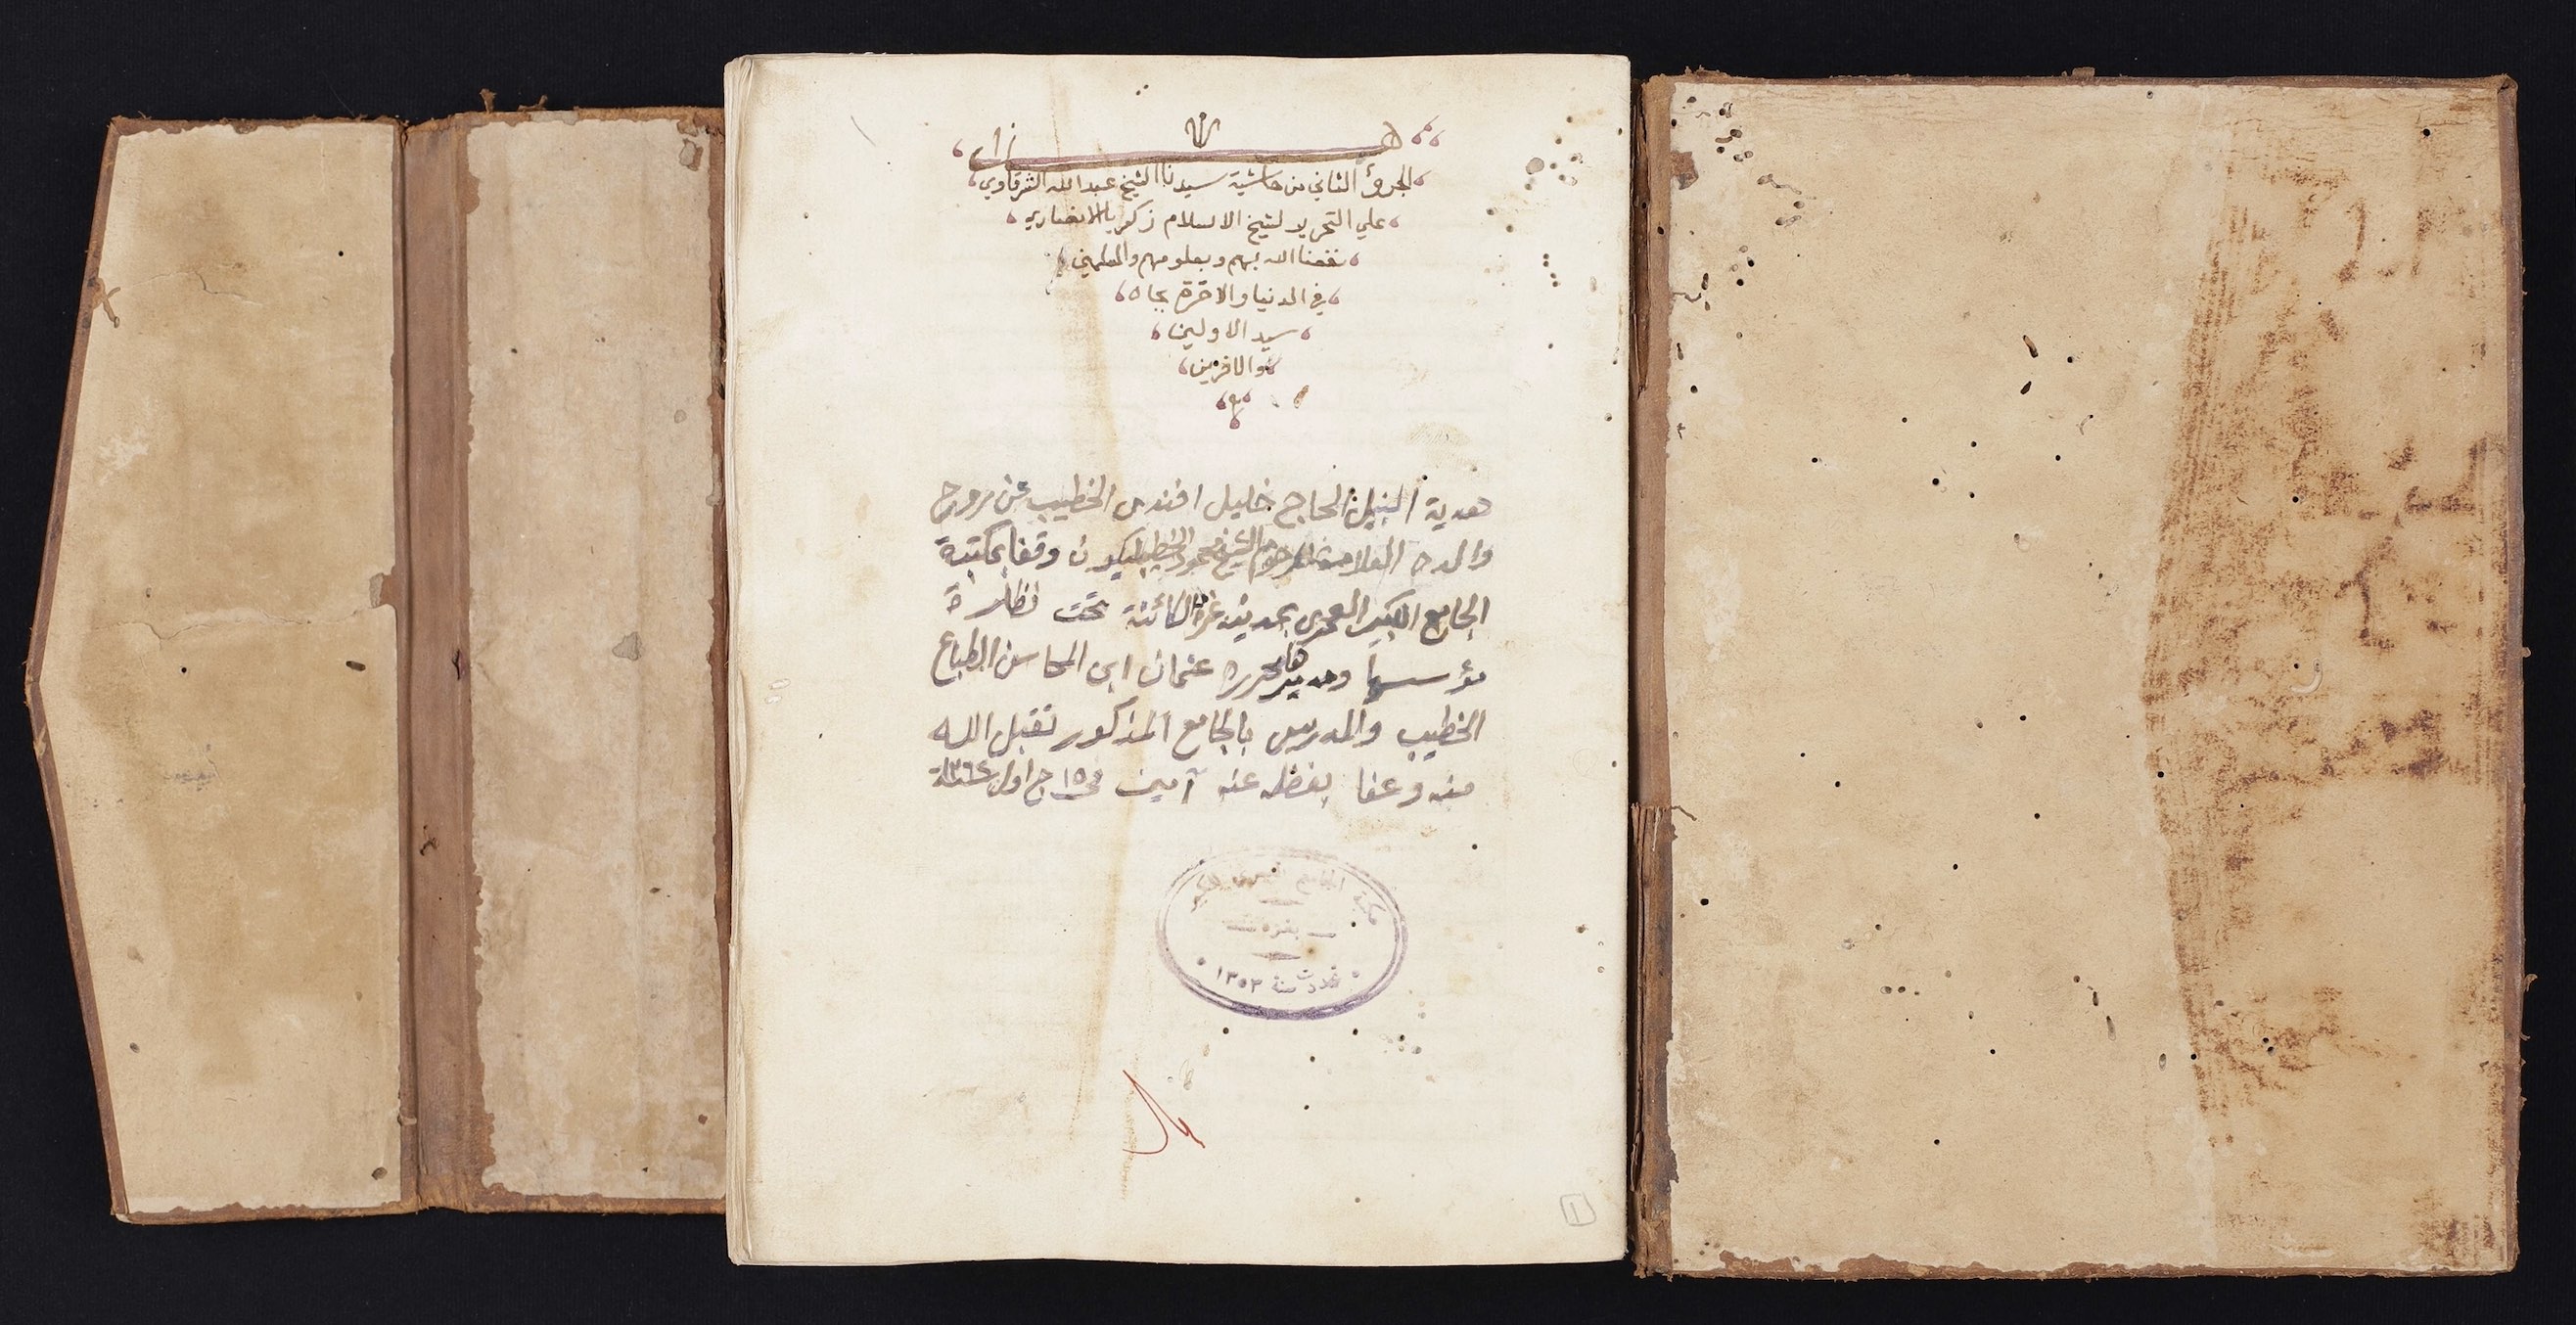 هذا
الجزؤ الثاني من حاشية سيدنا الشيخ عبد الله الشرقاوي
علي التحرير لشيخ الاسلام زكريا الانصاري
نفعنا الله بهم وبعلومهم والمسلمين
في الدنيا والاخرة بجاه
سيد الاولين
والاخرين
هدية النبيل الحاج خليل افندى الخطيب عن روح
والده العلامة المرحوم الشيخ محمود الخطيب ليكون وقفا بمكتبة
الجامع الكبير العمرى بمدينة غزة الكائنة تحت نظارة
مؤسسها ومديرها محرره عثمان ابى المحاسن الطباع
الخطيب والمدرس بالجامع المذكور تقبل الله
منه وعفا بفضله عنه آمين فى ١٥ ج اول سنة ١٣٦٤
مكتبة الجامع العمرى الكبير
بغزة
تجددت سنة ١٣٥٣
١